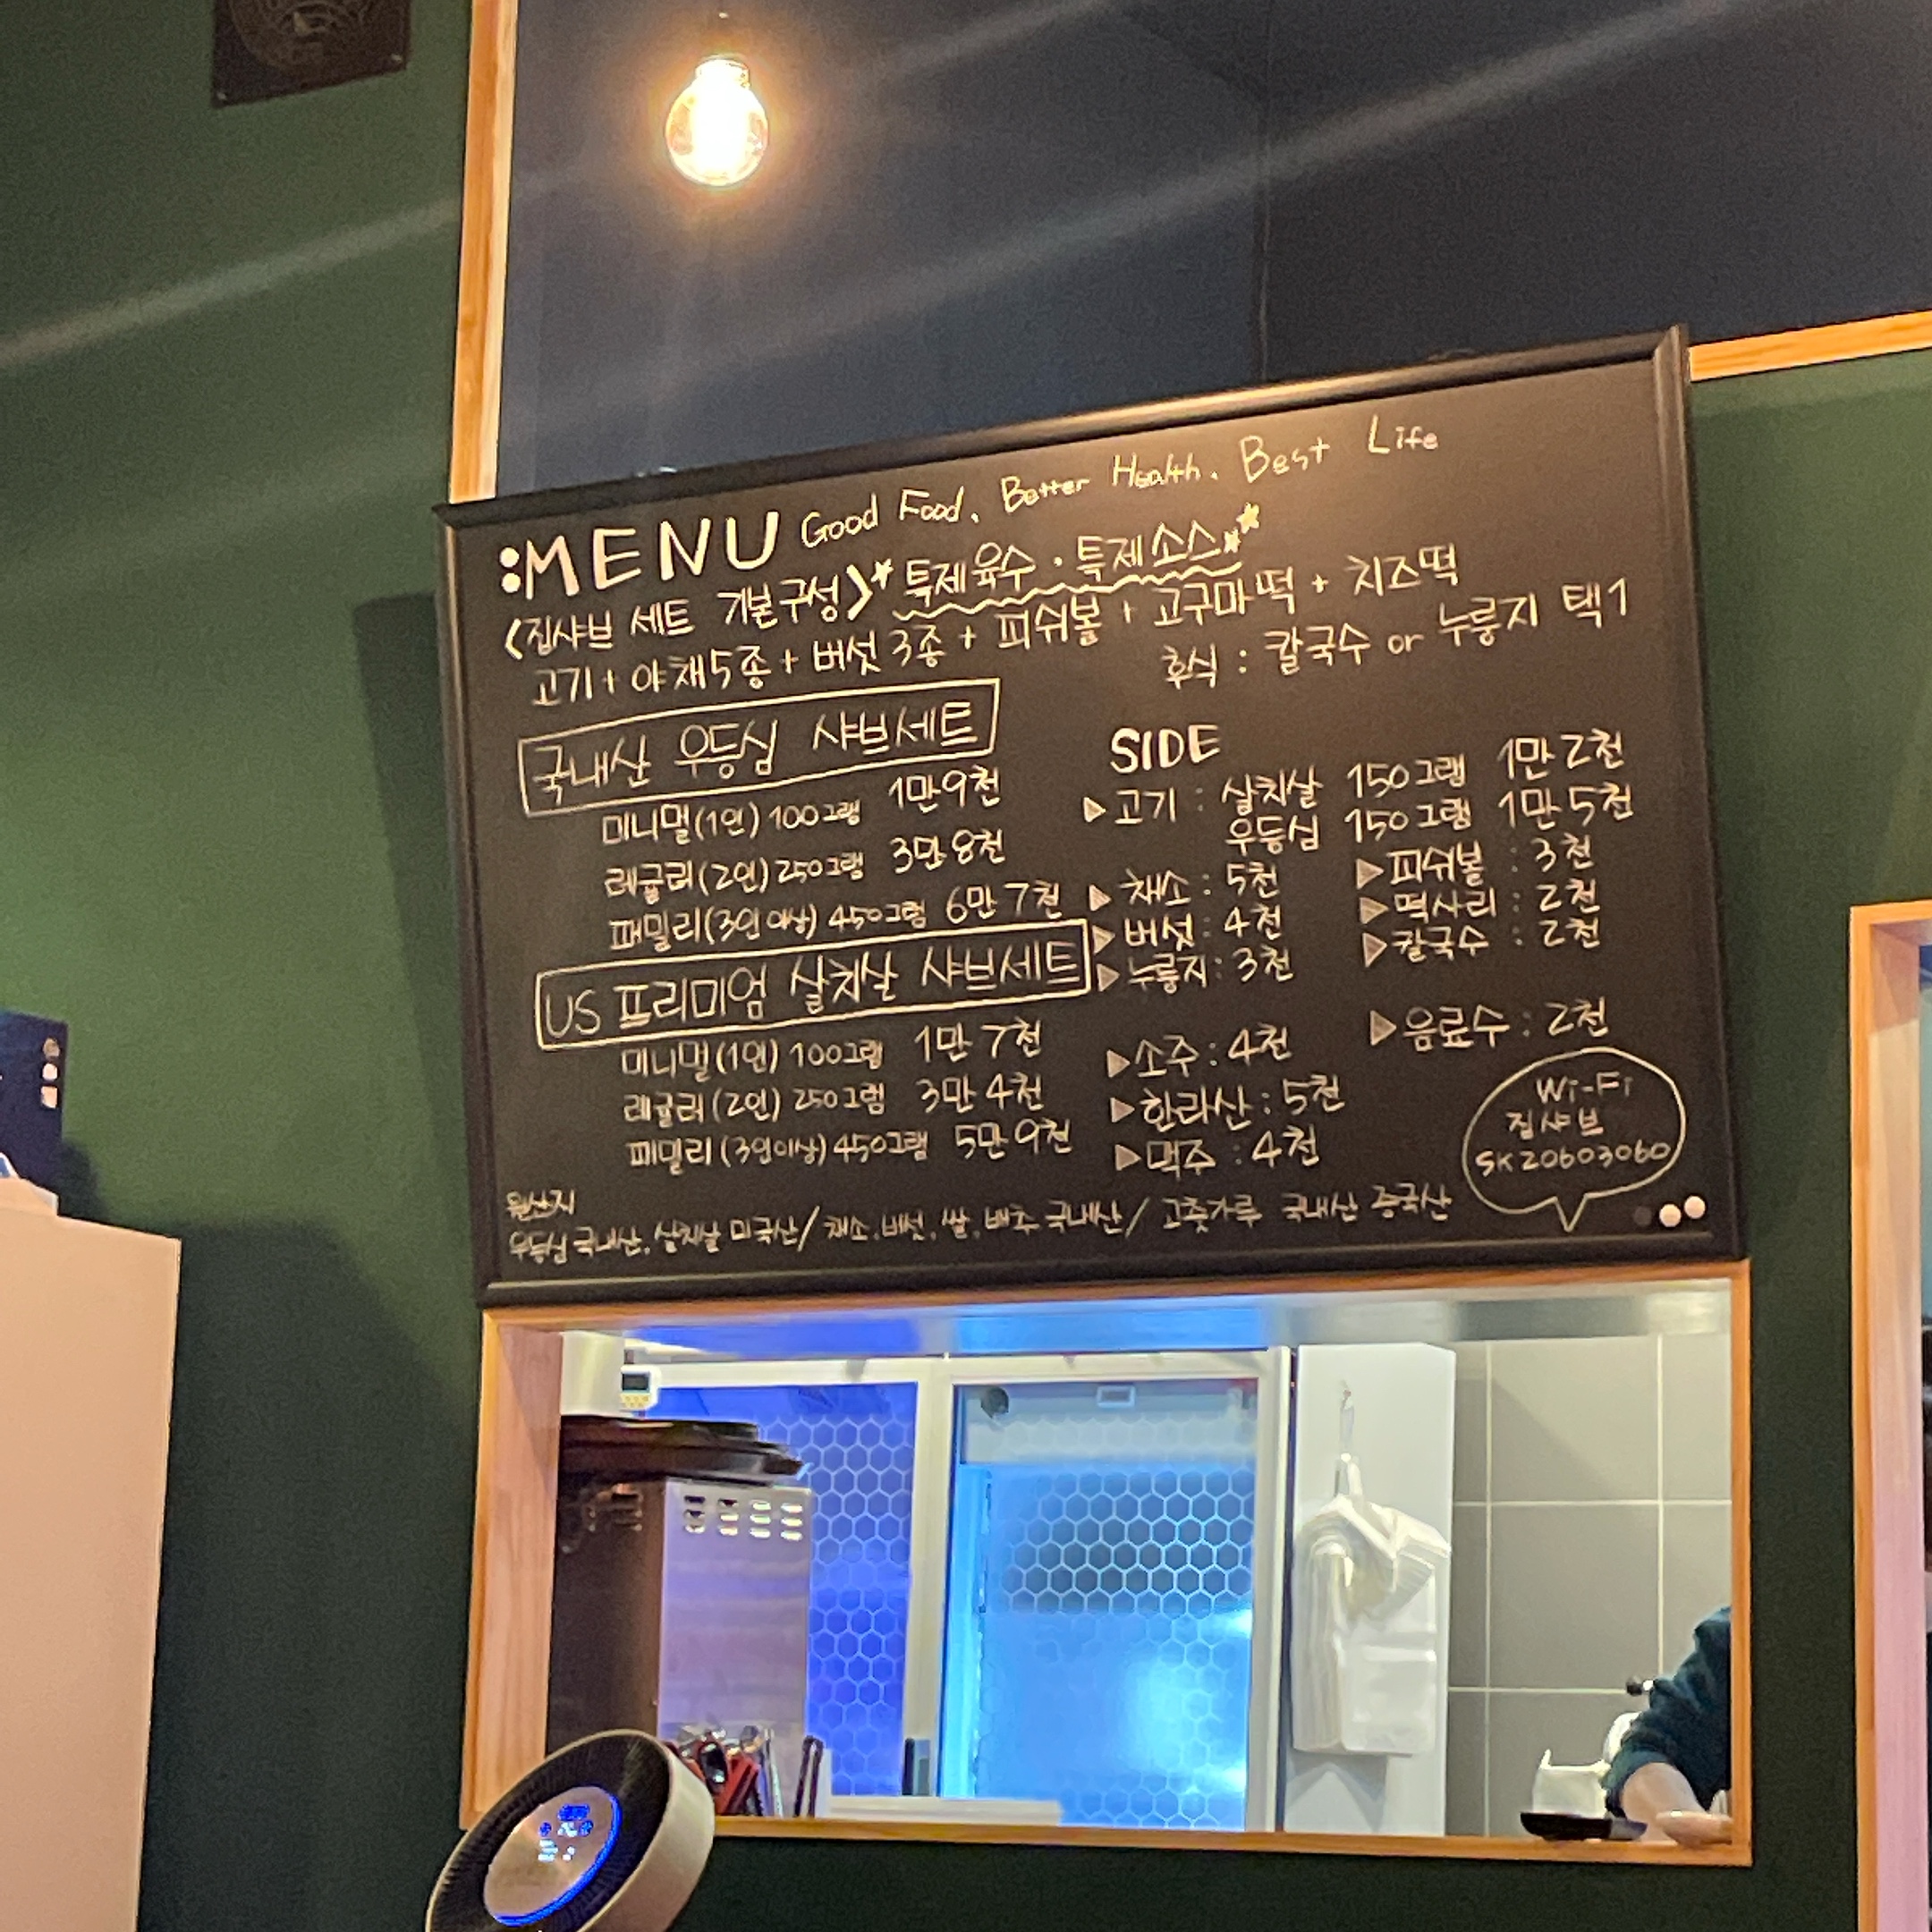 :MENU Good Food, Better Health, Best Life
<집샤브 세트 기본구성> *특제육수·특제소스**
고기+야채5종+버섯3종+피쉬볼+고구마떡+치즈떡
후식 : 칼국수 or 누룽지 택1
국내산 우등심 샤브세트
미니멀(1인) 100그램 1만9천
레귤러(2인) 250그램 3만8천
패밀리(3인이상) 450그램 6만7천
US 프리미엄 살치살 샤브세트
미니멀(1인) 100그램 1만 7천
레귤러(2인) 250그램 3만 4천
패밀리(3인이상) 450그램 5만 9천
SIDE
▶고기 : 살치살 150그램 1만 2천
우등심 150그램 1만 5천
▶채소 : 5천
▶버섯 : 4천
▶누룽지 : 3천
▶피쉬볼 : 3천
▶떡사리 : 2천
▶칼국수 : 2천
▶소주 : 4천
▶한라산 : 5천
▶맥주 : 4천
▶음료수 : 2천
Wi-Fi
집샤브
SK20603060
원산지
우등심 국내산, 살치살 미국산/ 채소, 버섯, 쌀, 배추 국내산/ 고춧가루 국내산 중국산